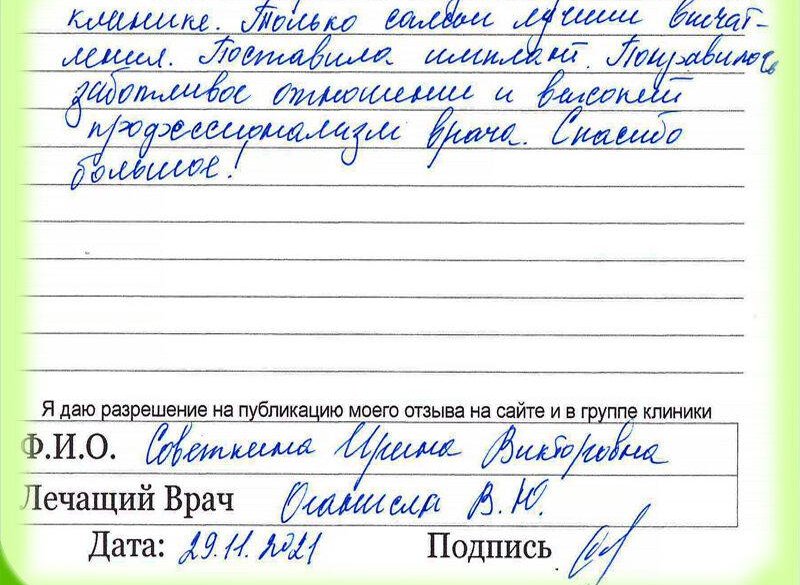 клинике. Только самые лучшии впечат-
ления. Поставила имплант. Понравилось
заботливое отношении и высокий
профессионализм врача. Спасибо
большое!
Я даю разрешение на публикацию моего отзыва на сайте и в группе клиники
Ф.И.О. Советкина Ирина Викторовна
Лечащий Врач В.Ю.
Дата: 29.11.2021 Подпись